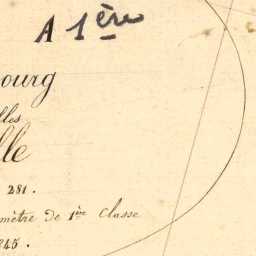 A 1ère
ourg
lles
lle
281.
mètre de 1ère Classe
845.